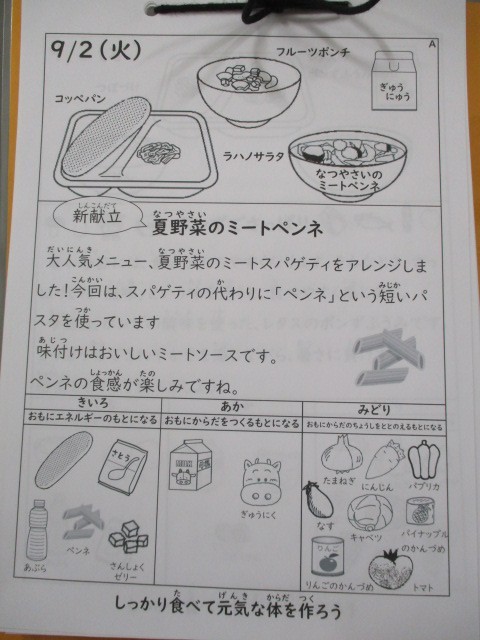 9/2(火)
A
フルーツポンチ
ぎゅう
にゅう
コッペパン
ラハノサラタ
なつやさいの
ミートペンネ
しんこんだて
新献立
なつやさい
夏野菜のミートペンネ
だいにんき なつやさい
大人気メニュー、夏野菜のミートスパゲティをアレンジしま
こんかい か みじか
した!今回は、スパゲティの代わりに「ペンネ」という短いパ
つか
スタを使っています
あじつ
味付けはおいしいミートソースです。
しょっかん たの
ペンネの食感が楽しみですね。
きいろ
おもにエネルギーのもとになる
あか
おもにからだをつくるもとになる
みどり
おもにからだのちょうしをととのえるもとになる
さとう
あぶら
ペンネ
さんしょく
ゼリー
ぎゅうにく
たまねぎ
にんじん
パプリカ
なす
キャベツ
パイナップル
のかんづめ
りんご
りんごのかんづめ
トマト
た げんき からだ つく
しっかり食べて元気な体を作ろう